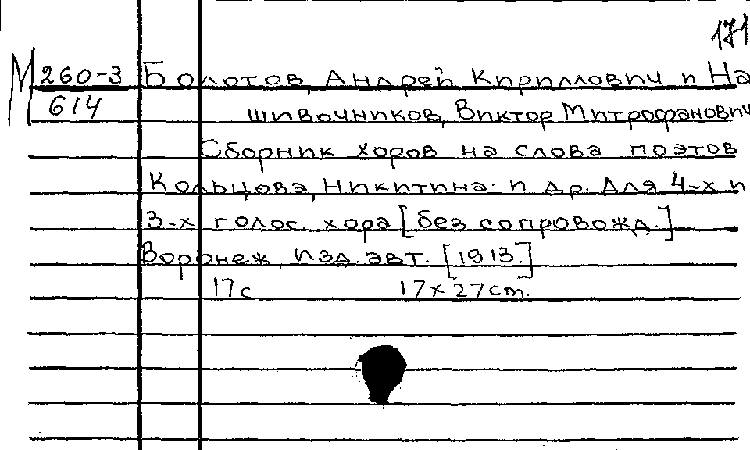 171
М 260-3 Болотов, Андрей Кириллович и На
614 шивочников, Виктор Митрофанович
Сборник хоров на слова поэтов
Кольцова, Никитина и др. Для 4-х и
3-х голос. хора [без сопровожд.]
Воронеж, изд. авт. [1913.]
17с 17х27cm.